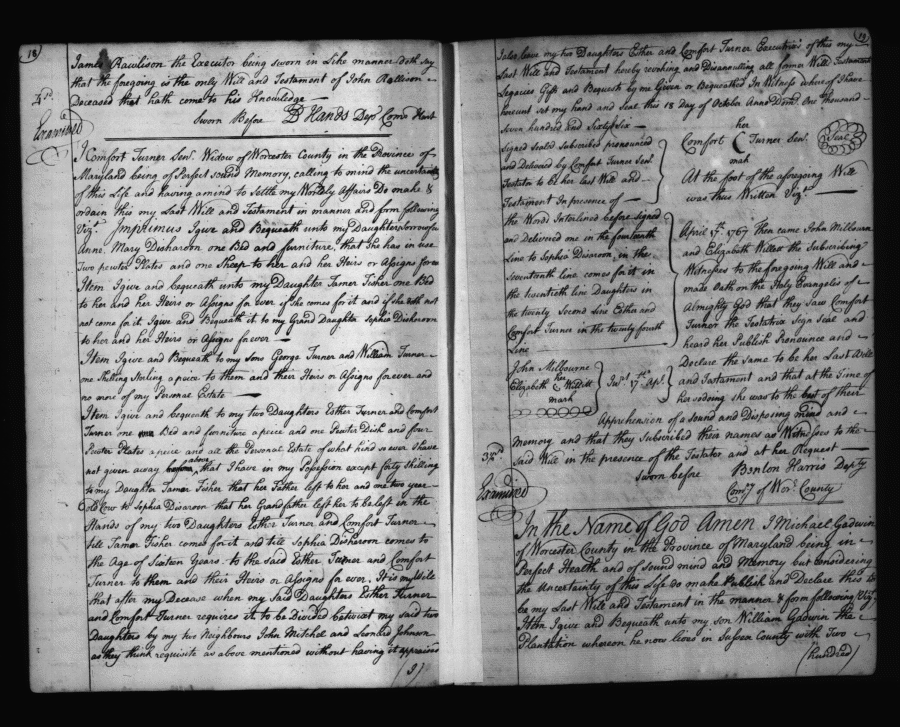 18
James Rawlison the Executor being sworn in like manner doth say
that the foregoing is the only Will and Testament of John Rallison
Deceased that hath come to his Knowledge
Sworn Before Hands Depy Comy
Examined
I Comfort Turner Senr. Widow of Worcester County in the Province of
Maryland being of Perfect sound Memory, calling to mind the uncertainty
of this Life and having a mind to Settle my Worldly Affairs Do make &
ordain this my Last Will and Testament in manner and form following
Vizt. Imprimus I give and Bequeath unto my Daughter
Anne Mary Disharoon one Bed and furniture that she has in use
Two pewter Plates and one Sheep to her and her Heirs or Assigns forever
Item I give and bequeath unto my Daughter Tamer Fisher one Bed
to her and her Heirs or Assigns for ever if she comes for it and if she doth not
not come for it I give and Bequeath it to my Grand Daughter Sophia Disharoon
to her and her Heirs or Assigns forever
Item I give and Bequeath to my Sons George Turner and William Turner
one Shilling Sterling a piece to them and their Heirs or Assigns forever and
no more of my Personal Estate
Item I give and bequeath to my two Daughters Esther Turner and Comfort
Turner one Bed and furniture a peice and one Pewter Dish and four
Pewter Plates a peice and all the Personal Estate of what kind so ever I have
not given away above that I have in my Possession except forty Shillings
to my Daughter Tamer Fisher that her Father left to her and one two year
Old Cow to Sophia Disaroon that her Grandfather left her to be left in the
Hands of my two Daughters Esther Turner and Comfort Turner
till Tamer Fisher comes for it and till Sophia Disharoon comes to
the Age of Sixteen Years to the Said Esther Turner and Comfort
Turner to them and their Heirs or Assigns for ever. It is my Will
that after my Decease when my Said Daughters Esther Turner
and Comfort Turner requires it to be Divided betwixt my said two
Daughters by my two Neighbours John Mitchel and Leonard Johnson
as they think requisite as above mentioned without having it appraised
19
I also leave my two Daughters Esther and Comfort Turner Executrixs of this my
Last Will and Testament hereby revoking and Disannulling all former Will Testaments
Legacies Gifts and Bequests by me Given or Bequeathed In Witness whereof I have
hereunt set my hand and Seal this 18 Day of October Anno Domi. One thousand
Seven hundred and Sixtysix
Signed Sealed Subscribed pronounced
and Delivered by Comfort Turner Senr.
Testator to be her Last Will and
Testament In presence of
the Words Interlined before signed
and Delivered one in the fourteenth
Line to Sophia Disaroon, in the
Seventeenth line comes for it in
the twentieth line Daughters in
the twenty Second Line Esther and
Comfort Turner in the twenty fourth
Line
her
Comfort C Turner Senr. Seal
mark
At the foot of the aforegoing Will
was thus Written Vizt.
April 17th. 1767 Then came John Milbourn
and Elizabeth Willett the Subscribing
Witnesses to the foregoing Will and
made Oath on the Holy Evangeles of
Almighty God that they Saw Comfort
Turner the Testatrix Sign Seal and
heard her Publish Pronounce and
Declare the Same to be her Last Will
and Testament and that at the Time of
her so doing she was to the best of their
John Milbourne
her
Elizabeth Willitt
mark
Jurt. 17th Apl.
Apprehension of a Sound and Disposing mind and
Memory and that they Subscribed their names as Witnesses to the
Said Will in the presence of the Testator and at her Request
Sworn before Benton Harris Depty
Comy of Worr. County
Examined
In the Name of God Amen I Michael Gadwin
of Worcester County in the Province of Maryland being in
Perfect Health and of Sound mind and Memory but Considering
the Uncertainty of this Life Do make Publish and Declare this to
be my Last Will and Testament in the manner & form following Vizt.
Item I give and Bequeath unto my son William Gadwin the
Plantation whereon he now lives in Sussex County with Two
(hundred)